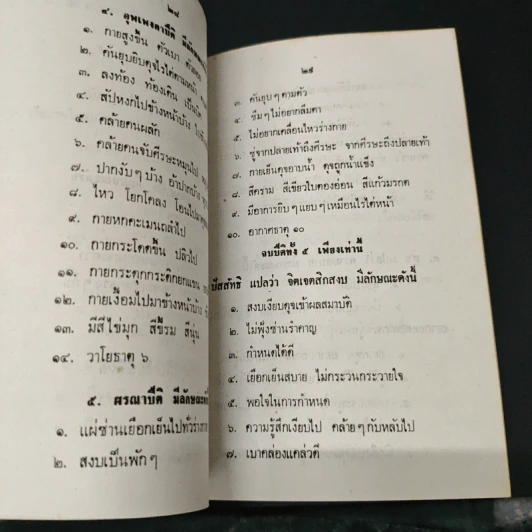 ๒๔
๔. อุพเพงคาปีติ มีลักษณะ
๑. กายสูงขึ้น ตัวเบา ตัวลอย
๒. คันยุบยิบดุจไรไต่ตามหน้า
๓. ลงท้อง ท้องเดิน เป็นบิด
๔. สัปหงกไปข้างหน้าบ้าง
๕. คล้ายคนผลัก
๖. คล้ายคนจับศีรษะหมุนไป
๗. ปากงับๆ บ้าง อ้าปากบ้าง
๘. ไหว โยกโคลง โอนไป
๙. กายหกคะเมนถลำไป
๑๐. กายกระโดดขึ้น ปลิวไป
๑๑. กายกระดุกกระดิกยกแขน
๑๒. กายเงื้อมไปมาข้างหน้าบ้าง
๑๓. มีสีไข่มุก สีขี้รม สีนุ่น
๑๔. วาโยธาตุ ๖
๕. ผรณาปีติ มีลักษณะ
๑. แผ่ซ่านเยือกเย็นไปทั่วร่างกาย
๒. สงบเป็นพักๆ
๒๕
๓. คันยุบๆ ตามตัว
๔. ซึมๆ ไม่อยากลืมตา
๕. ไม่อยากเคลื่อนไหวร่างกาย
๖. ซู่จากปลายเท้าถึงศีรษะ จากศีรษะถึงปลายเท้า
๗. กายเย็นดุจอาบน้ำ ดุจถูกน้ำแข็ง
๘. สีคราม สีเขียวใบตองอ่อน สีแก้วมรกต
๙. มีอาการยิบๆ แยบๆ เหมือนไรไต่หน้า
๑๐. อากาศธาตุ ๑๐
จบปีติทั้ง ๕ เพียงเท่านี้
ปัสสัทธิ แปลว่า จิตเจตสิกสงบ มีลักษณะดังนี้
๑. สงบเงียบดุจเข้าผลสมาบัติ
๒. ไม่ฟุ้งซ่านรำคาญ
๓. กำหนดได้ดี
๔. เยือกเย็นสบาย ไม่กระวนกระวายใจ
๕. พอใจในการกำหนด
๖. ความรู้สึกเงียบไป คล้ายๆ กับหลับไป
๗. เบาคล่องแคล่วดี